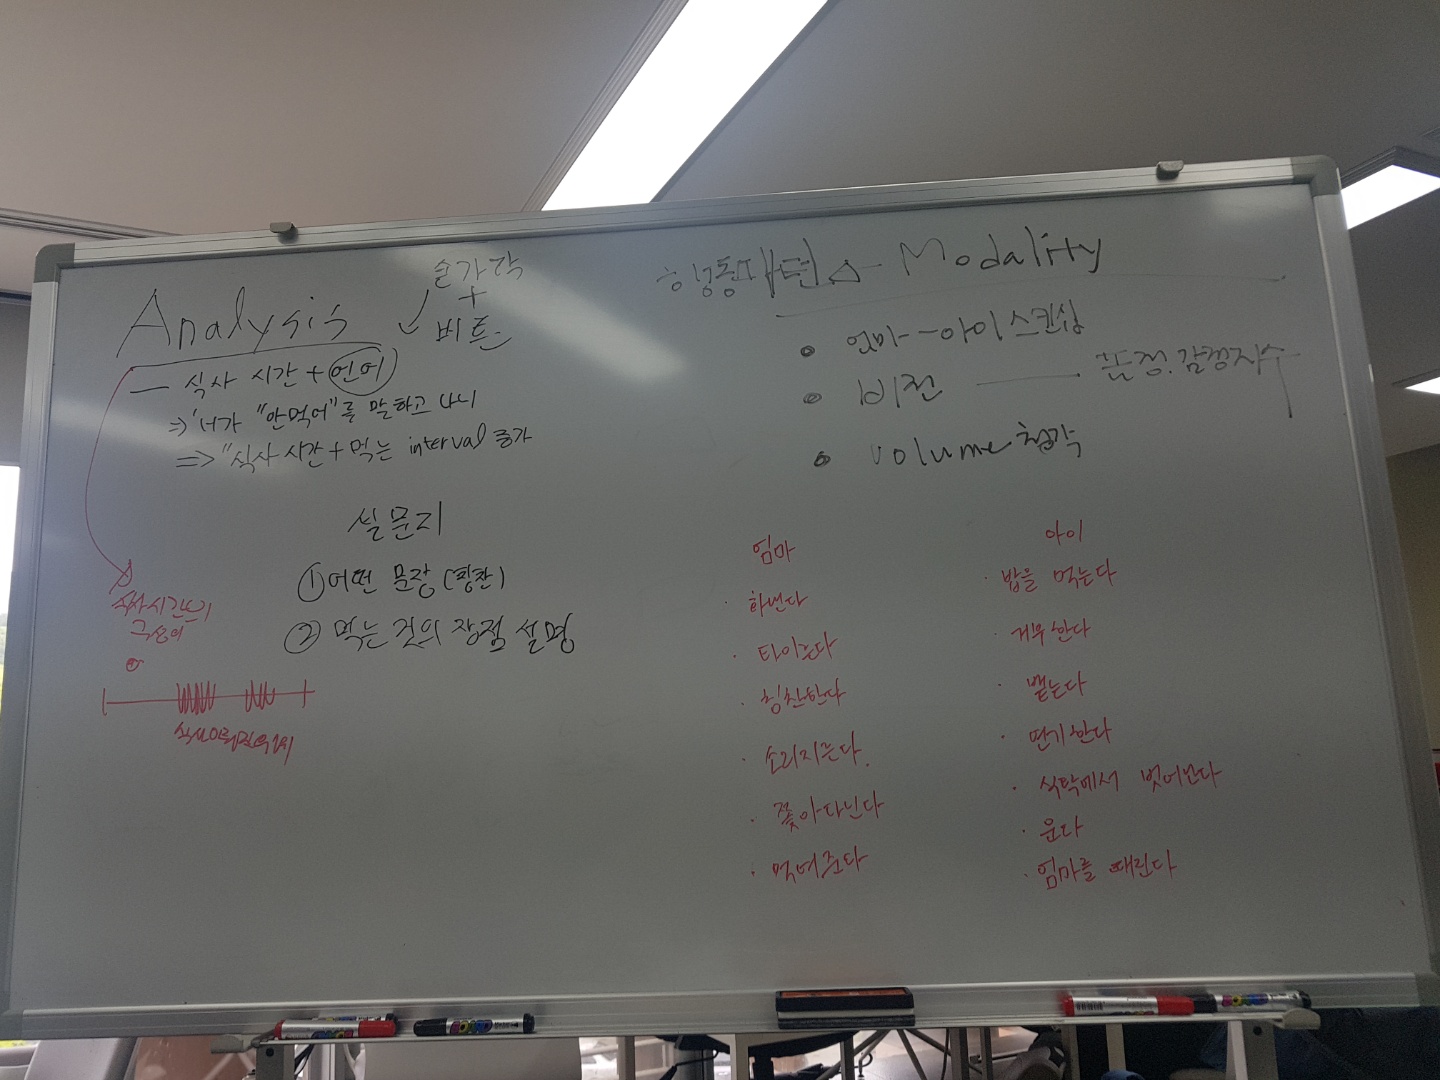 Analysis
숟가락
+
비튼
— 식사 시간 + 언어
⇒ "안먹어"를 말하고 나니
⇒ "식사 시간 + 먹는 interval 증가
설문지
① 어떤 문장 (칭찬)
② 먹는 것의 장점 설명
식사시간
행동패턴 Modality
• 엄마-아이 스킨십
• 비전 — 표정.감정지수
• volume 청각
엄마
· 화낸다
· 타이른다
· 칭찬한다
· 소리지른다.
· 쫓아다닌다
· 먹여준다
아이
· 밥을 먹는다
· 거부한다
· 뱉는다
· 딴기한다
· 식탁에서 벗어난다
· 운다
· 엄마를 때린다